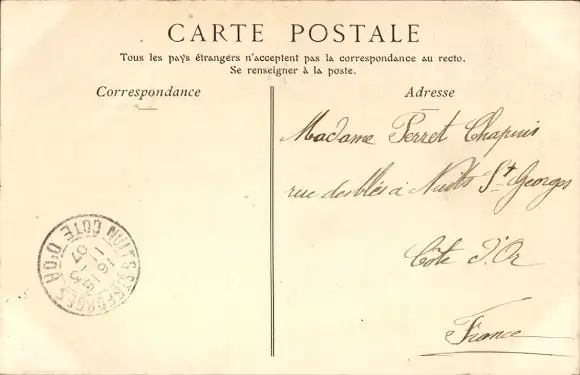 CARTE POSTALE
Tous les pays étrangers n'acceptent pas la correspondance au recto.
Se renseigner à la poste.
Correspondance
Adresse
Madame Perret Chapuis
rue des blés à Nuits St Georges
Côte d'Or
France
NUITS-ST-GEORGES CÔTE D'OR